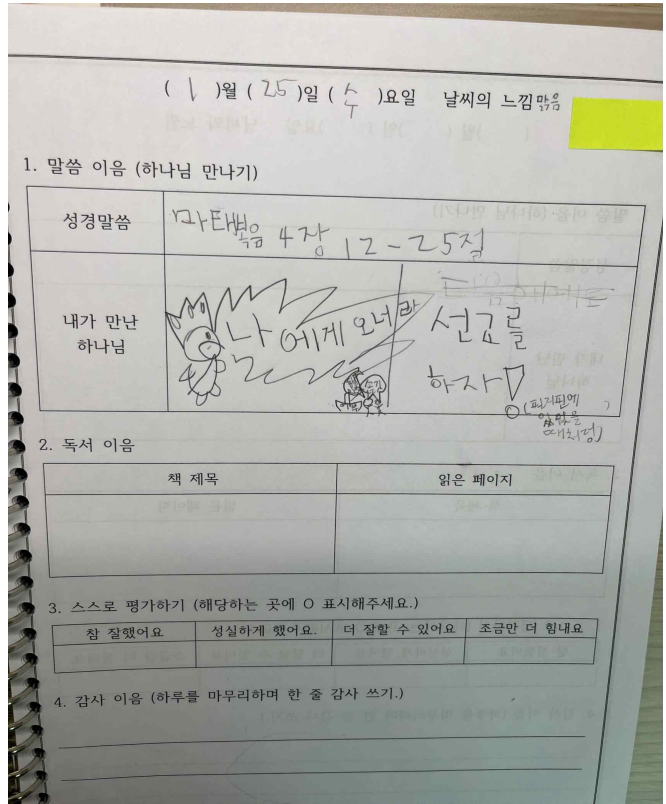 ( 1 )월 ( 25 )일 ( 수 )요일 날씨의 느낌 맑음
1. 말씀 이음 (하나님 만나기)
성경말씀
마태복음 4장 12-25절
내가 만난
하나님
날에게 오너라
선교를
하자!
(필리핀에
있었을
때처럼)
2. 독서 이음
책 제목 읽은 페이지
3. 스스로 평가하기 (해당하는 곳에 O 표시해주세요.)
참 잘했어요 성실하게 했어요. 더 잘할 수 있어요 조금만 더 힘내요
4. 감사 이음 (하루를 마무리하며 한 줄 감사 쓰기.)